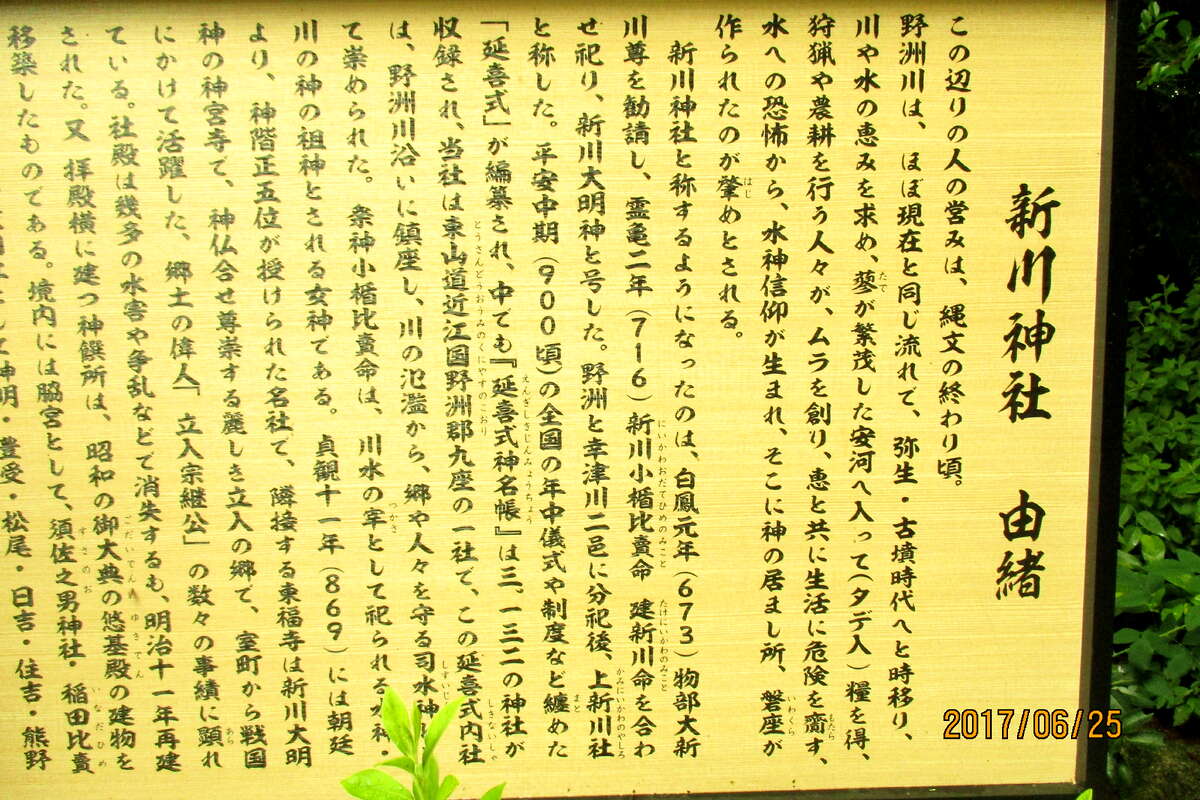 新川神社 由緒
この辺りの人の営みは、縄文の終わり頃。
野洲川は、ほぼ現在と同じ流れで、弥生・古墳時代へと時移り、
川や水の恵みを求め、蓼が繁茂した安河へ入って(タデ入)糧を得、
狩猟や農耕を行う人々が、ムラを創り、恵と共に生活に危険を齎す、
水への恐怖から、水神信仰が生まれ、そこに神の居まし所、磐座が
作られたのが肇めとされる。
新川神社と称するようになったのは、白鳳元年(673)物部大新
川尊を勧請し、霊亀二年(716)新川小楯比賣命 建新川命を合わ
せ祀り、新川大明神と号した。野洲と幸津川二邑に分祀後、上新川社
と称した。平安中期(900頃)の全国の年中儀式や制度など纏めた
「延喜式」が編纂され、中でも『延喜式神名帳』は三、一三二の神社が
収録され、当社は東山道近江国野洲郡九座の一社で、この延喜式内社
は、野洲川沿いに鎮座し、川の氾濫から、郷や人々を守る司水神
て崇められた。祭神小楯比賣命は、川水の宰として祀られる水神・
川の神の祖神とされる女神である。貞観十一年(869)には朝廷
より、神階正五位が授けられた名社で、隣接する東福寺は新川大明
神の神宮寺で、神仏合せ尊崇する麗しき立入の郷で、室町から戦国
にかけて活躍した、郷土の偉人」立入宗継公」の数々の事績に顕れ
ている。社殿は幾多の水害や争乱などで消失するも、明治十一年再建
された。又 拝殿横に建つ神饌所は、昭和の御大典の悠基殿の建物を
移築したものである。境内には脇宮として、須佐之男神社・稲田比賣
神明・豊受・松尾・日吉・住吉・熊野
2017/06/25